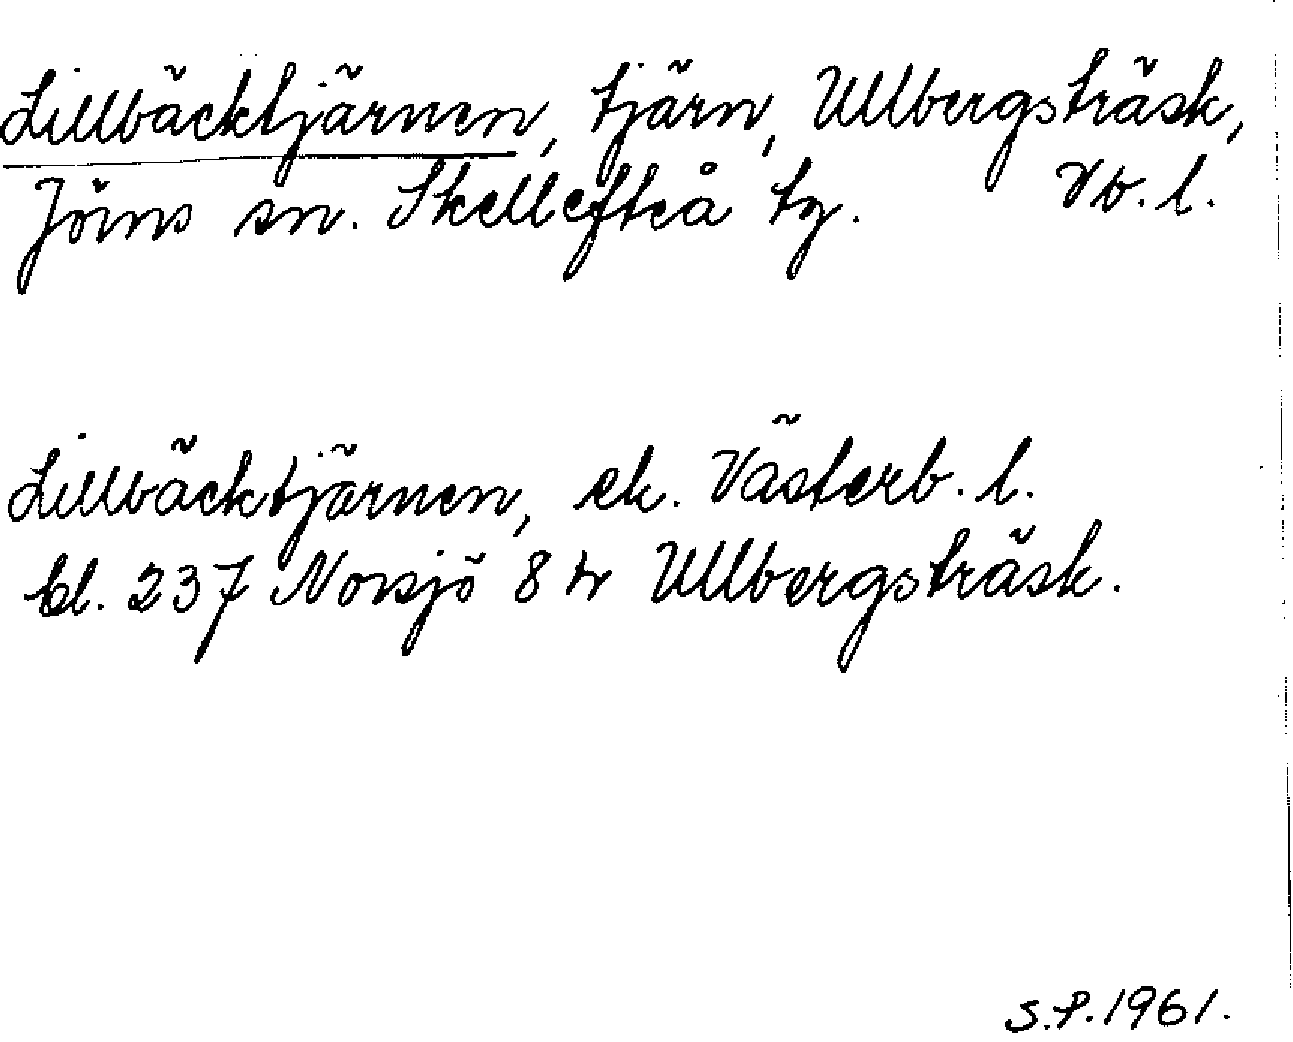 Lillbäcktjärnen, tjärn, Ullbergsträsk,
Jörns sn. Skellefteå tg. Vb. l.
Lillbäcktjärnen, ek. Västerb. l.
bl. 237 Norsjö 8 tr Ullbergsträsk.
S.P. 1961.